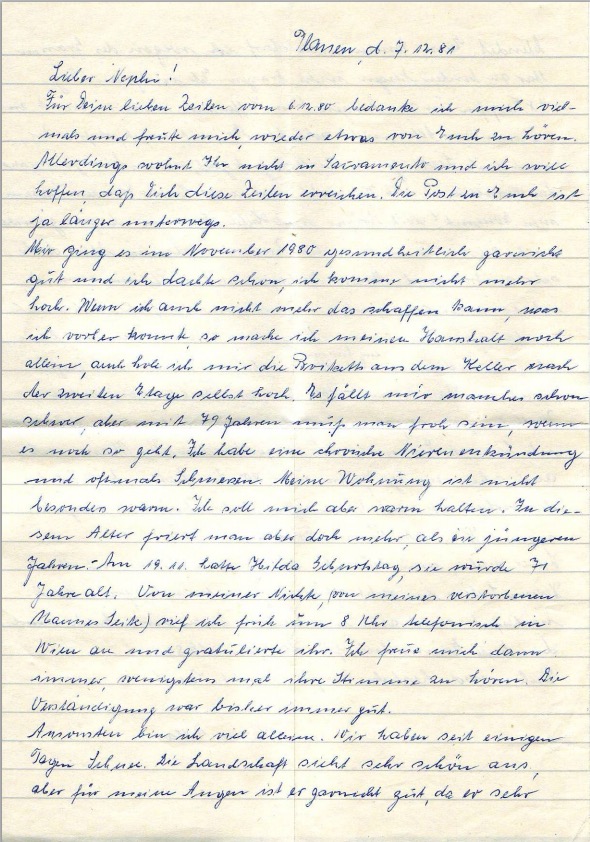 Plauen, d. 7.12.81
Lieber Nephi!
Für Deine lieben Zeilen vom 6.12.80 bedanke ich mich viel-
mals und freute mich, wieder etwas von Euch zu hören.
Allerdings wohnt Ihr nicht in Sacramento und ich will
hoffen, daß Dich diese Zeilen erreichen. Die Post zu Euch ist
ja länger unterwegs.
Mir ging es im November 1980 gesundheitlich garnicht
gut und ich dachte schon, ich komme nicht mehr
hoch. Wenn ich auch nicht mehr das schaffen kann, was
ich vorher konnte, so mache ich meinen Haushalt noch
allein, auch hole ich mir die Briketts aus dem Keller nach
der zweiten Etage selbst hoch. Es fällt mir manches schon
schwer, aber mit 79 Jahren muß man froh sein, wenn
es noch so geht. Ich habe eine chronische Nierenentzündung
und oftmals Schmerzen. Meine Wohnung ist nicht
besonders warm. Ich soll mich aber warm halten. In die-
sem Alter friert man aber doch mehr, als in jüngeren
Jahren. - Am 19.11. hatte Hilda Geburtstag, sie wurde 71
Jahre alt. Von meiner Nichte, (von meines verstorbenen
Mannes Seite) rief ich früh um 8 Uhr telefonisch in
Wien an und gratulierte ihr. Ich freue mich dann
immer, wenigstens mal ihre Stimme zu hören. Die
Verständigung war bisher immer gut.
Ansonsten bin ich viel allein. Wir haben seit einigen
Tagen Schnee. Die Landschaft sieht sehr schön aus,
aber für meine Augen ist er garnicht gut, da er sehr